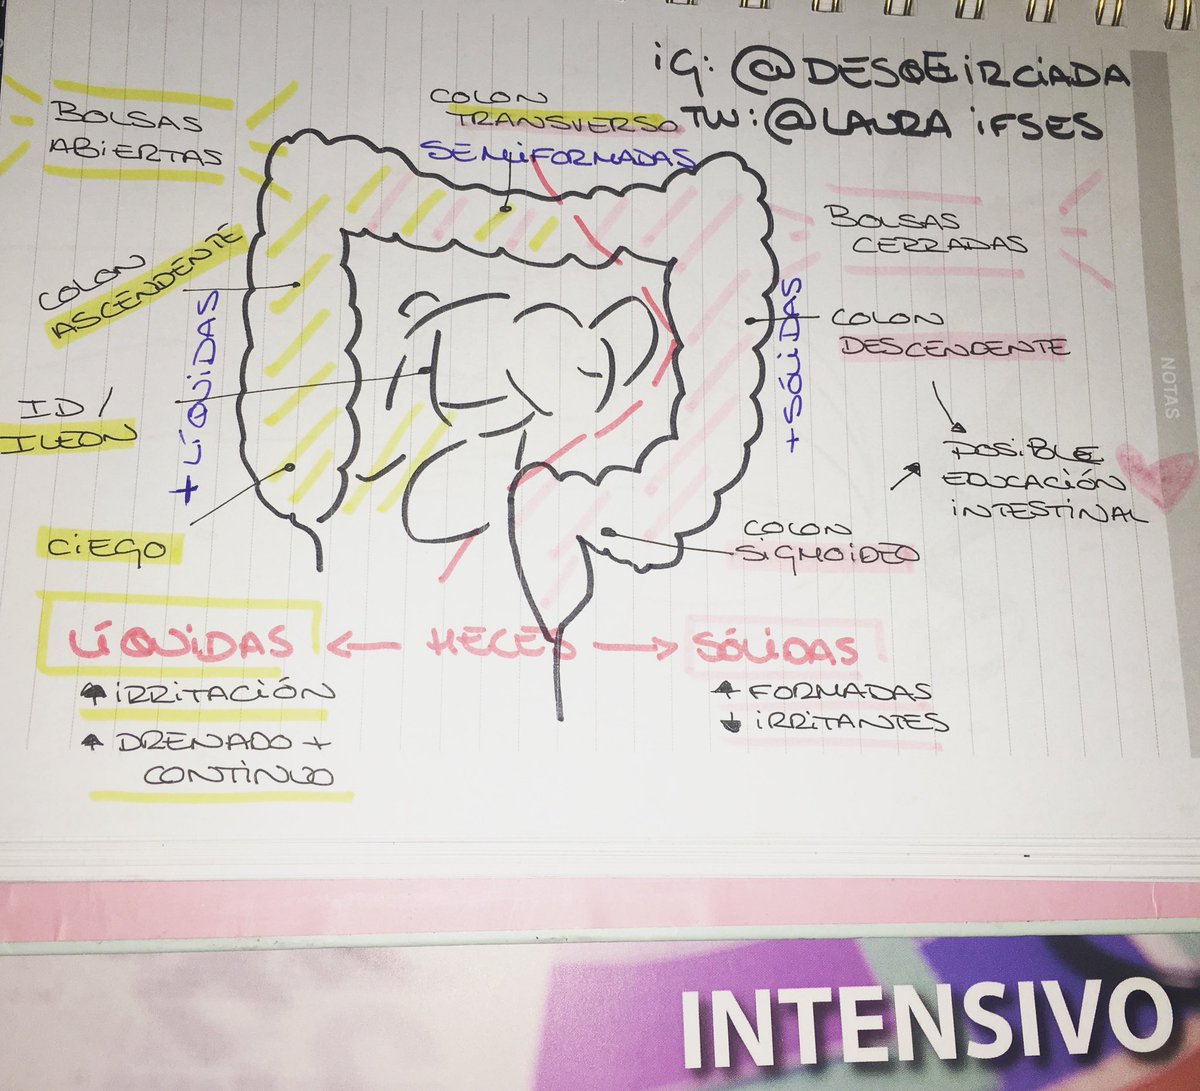 iG: @DESQEIRCIADA
TW: @LAURA iFSES
BOLSAS
ABIERTAS
COLON
TRANSVERSO
SEMiFORMADAS
BOLSAS
CERRADAS
COLON
ASCENDENTE
+ LÍQUIDAS
+ SÓLIDAS
COLON
DESCENDENTE
ID /
ILEON
POSIBLE
EDUCACIÓN
INTESTINAL
CIEGO
COLON
SIGMOIDEO
LÍQUIDAS ← HECES → SÓLIDAS
↑ IRRITACIÓN
↑ DRENADO +
CONTINUO
↑ FORMADAS
↓ IRRITANTES
NOTAS
INTENSIVO